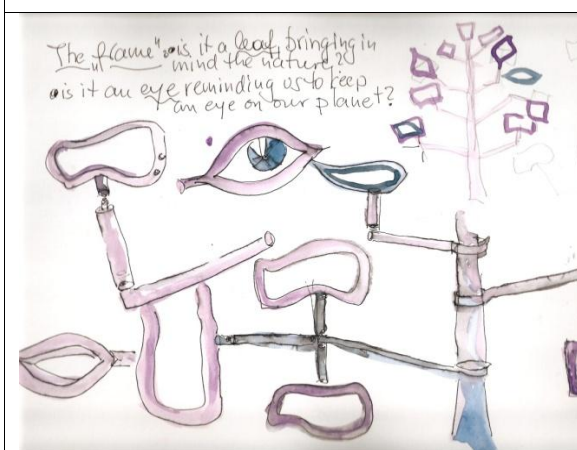 The "frame" • is it a leaf, bringing in
mind the nature?
• is it an eye reminding us to keep
an eye on our planet?